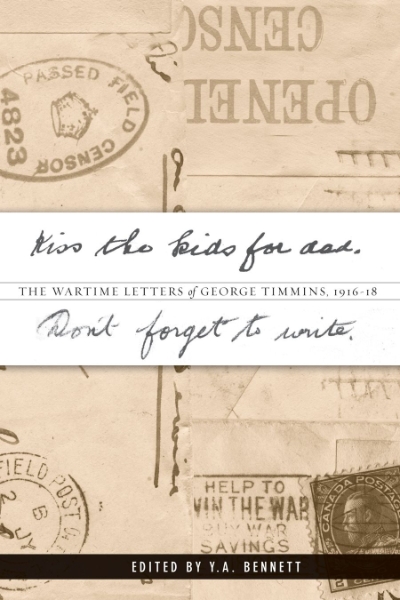 CENSO
OPENED
PASSED FIELD CENSOR
4823
Kiss the kids for dad.
THE WARTIME LETTERS of GEORGE TIMMINS, 1916-18
Don't forget to write.
FIELD POST O
B
2 JY
HELP TO
WIN THE WAR
BUY WAR
SAVINGS
CANADA POSTAGE
EDITED BY Y.A. BENNETT